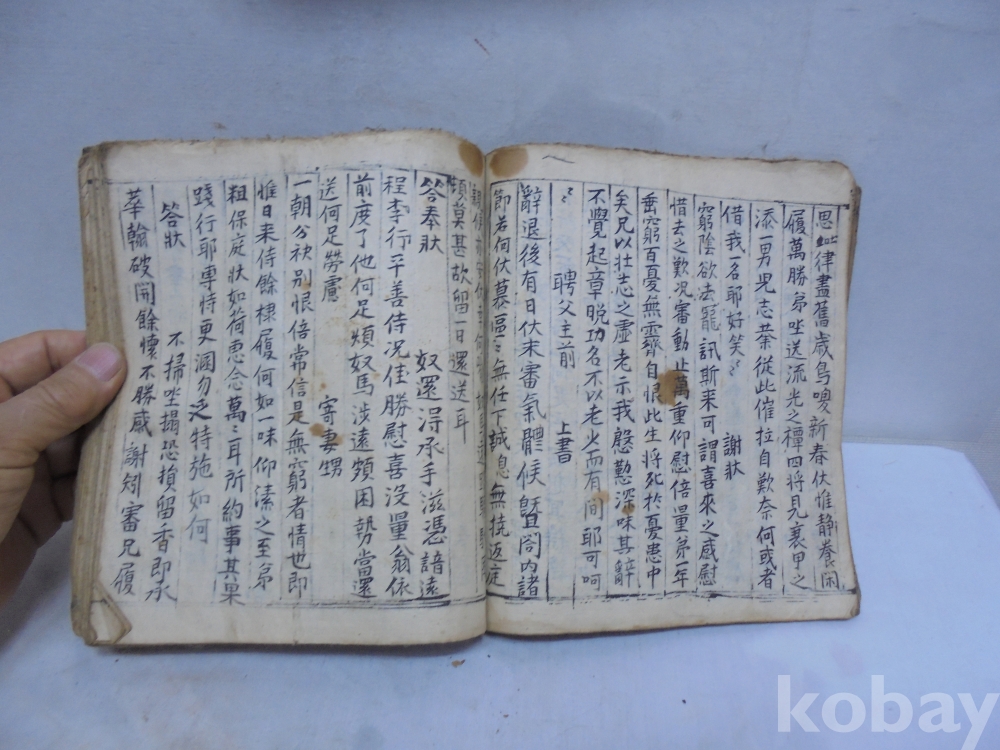 思 律盡舊歲鳥嗄新春伏惟靜養閑
履萬勝弟唑送流光之禪四將見襄甲之
添一男兒志業從此催拉自歎奈何或者
借我一名耶好笑〻 謝狀
窮陰欲法寵訊斯來可謂喜來之感慰
惜去之歎况審動止萬重仰慰倍量弟一年
垂窮百憂無霽自恨此生將死於憂患中
矣兄以壯志之虛老示我慇懃深味其辭
不覺起章晩功名不以老少而有間耶可呵
〻 聘父主前 上書
辭退後有日伏未審氣體候曁閤內諸
節若何伏慕區〻無任下誠息無撓返庭
頓莫甚故留一日還送耳
答奉狀 奴還淂承手滋憑諳遠
程李行平善侍况佳勝慰喜沒量翁依
前度了他何足煩奴馬涉遠頗困勢當還
送何足勞慮 寄妻甥
一朝分袂別恨倍常信是無窮者情也卽
惟日來侍餘棣履何如一味仰溸之至弟
粗保庭狀如荷惠念萬〻耳所約事其果
踐行耶專恃更溷勿乏特施如何
答狀 不掃唑搨恐損留香卽承
華翰破開餘懷不勝感謝矧審兄履
kobay